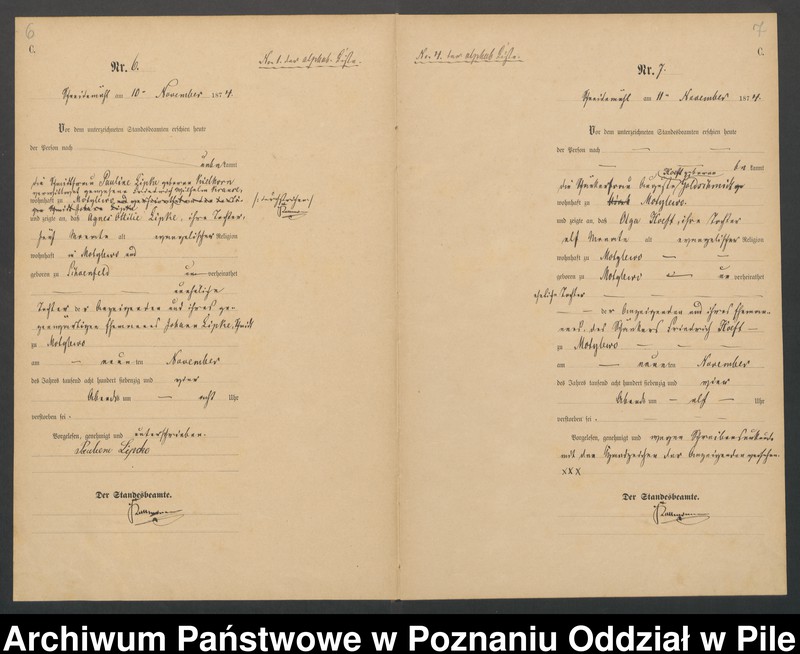 6
C.
Nr. 6.
No. 1. der alphab. Liste.
Schneidemühl am 10ten November 1874.
Vor dem unterzeichneten Standesbeamten erschien heute
der Person nach
unbekannt
die Schmittfrau Pauline Lipke geborene
verwittwet gewesene Wilhelm
wohnhaft zu Motylewo
und zeigte an, daß Agnes Ottilie Lipke, ihre Tochter,
fünf Monate alt evangelischer Religion
wohnhaft in Motylewo und
geboren zu Schoenfeld unverheirathet
uneheliche
Tochter der Anzeigenden und ihres ge-
genwärtigen Ehemannes Johann Lipke, Schmidt
zu Motylewo
am neunten November
des Jahres tausend acht hundert siebenzig und vier
Abends um acht Uhr
verstorben sei.
Vorgelesen, genehmigt und unterschrieben.
Lipcke
Der Standesbeamte.
7
C.
No. 4. der alphab. Liste.
Nr. 7.
Schneidemühl am 11ten November 1874.
Vor dem unterzeichneten Standesbeamten erschien heute
der Person nach
bekannt
geborene
die Auguste Goldschmidt
wohnhaft zu Motylewo.
und zeigte an, daß Olga, ihre Tochter
elf Monate alt evangelischer Religion
wohnhaft zu Motylewo
geboren zu Motylewo unverheirathet
eheliche Tochter
der Anzeigenden und ihres Eheman-
nes, des Friedrich
zu Motylewo
am neunten November
des Jahres tausend acht hundert siebenzig und vier
Abends um elf Uhr
verstorben sei.
Vorgelesen, genehmigt und wegen Schreibensunkunde
mit den Handzeichen der Anzeigenden versehen.
XXX
Der Standesbeamte.
Archiwum Państwowe w Poznaniu Oddział w Pile